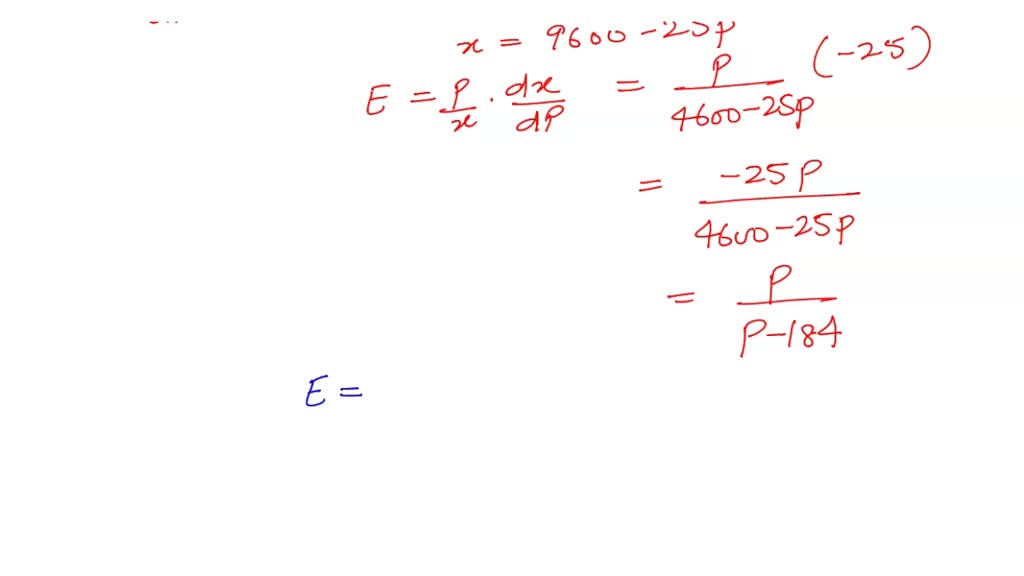 x = 9600 - 25p
E = p/x · dx/dp = p/4600-25p (-25)
= -25p/4600-25p
= p/p-184
E =